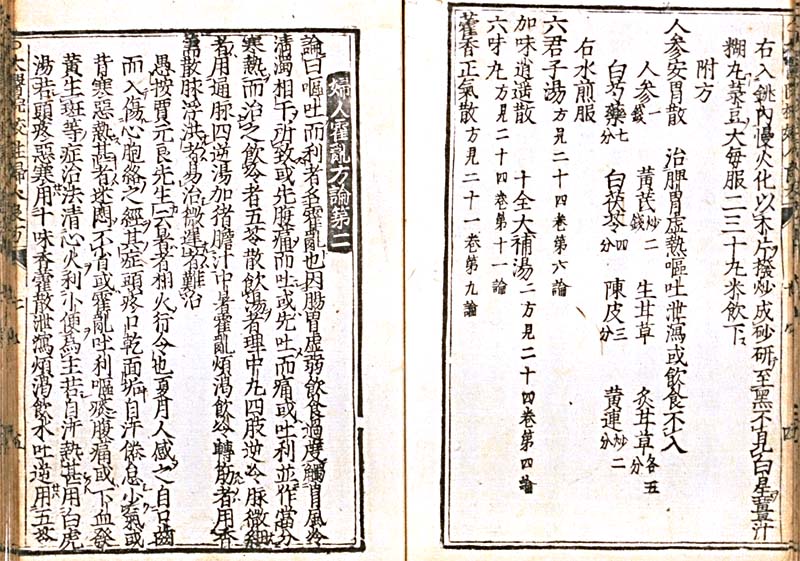 右入銚內慢火化以木片撥炒成砂研至黑不見白星薑汁
糊丸菉豆大每服二三十丸米飲下
附方
人參安胃散 治脾胃虛熱嘔吐泄瀉或飲食不入
人參一錢 黃芪炒二錢 生甘草 炙甘草各五分
白芍藥七分 白茯苓四分 陳皮三分 黃連炒二分
右水煎服
六君子湯方見二十四卷第六論
加味逍遙散 十全大補湯二方見二十四卷第四論
六味丸方見二十四卷第十一論
藿香正氣散方見二十一卷第九論
婦人霍亂方論第二
論曰嘔吐而利者名霍亂也因腸胃虛弱飲食過度觸冒風冷
淸濁相干所致或先腹痛而吐或先吐而痛或吐利並作當分
寒熱而治之飲冷者五苓散飲湯者理中丸四肢逆冷脉微細
者用通脉四逆湯加猪膽汁中暑霍亂煩渴飲冷轉筋者用香
薷散脉浮洪者易治微遲者難治
愚按賈元良先生云暑者相火行令也夏月人感之自口齒
而入傷心胞絡之經其症頭疼口乾面垢自汗倦怠少氣或
背寒惡熱甚者迷悶不省或霍亂吐利嘔痰腹痛或下血發
黃生斑等症治法淸心火利小便爲主若自汗熱甚用白虎
湯若頭疼惡寒用十味香薷散泄瀉煩渴飲水吐逆用五苓